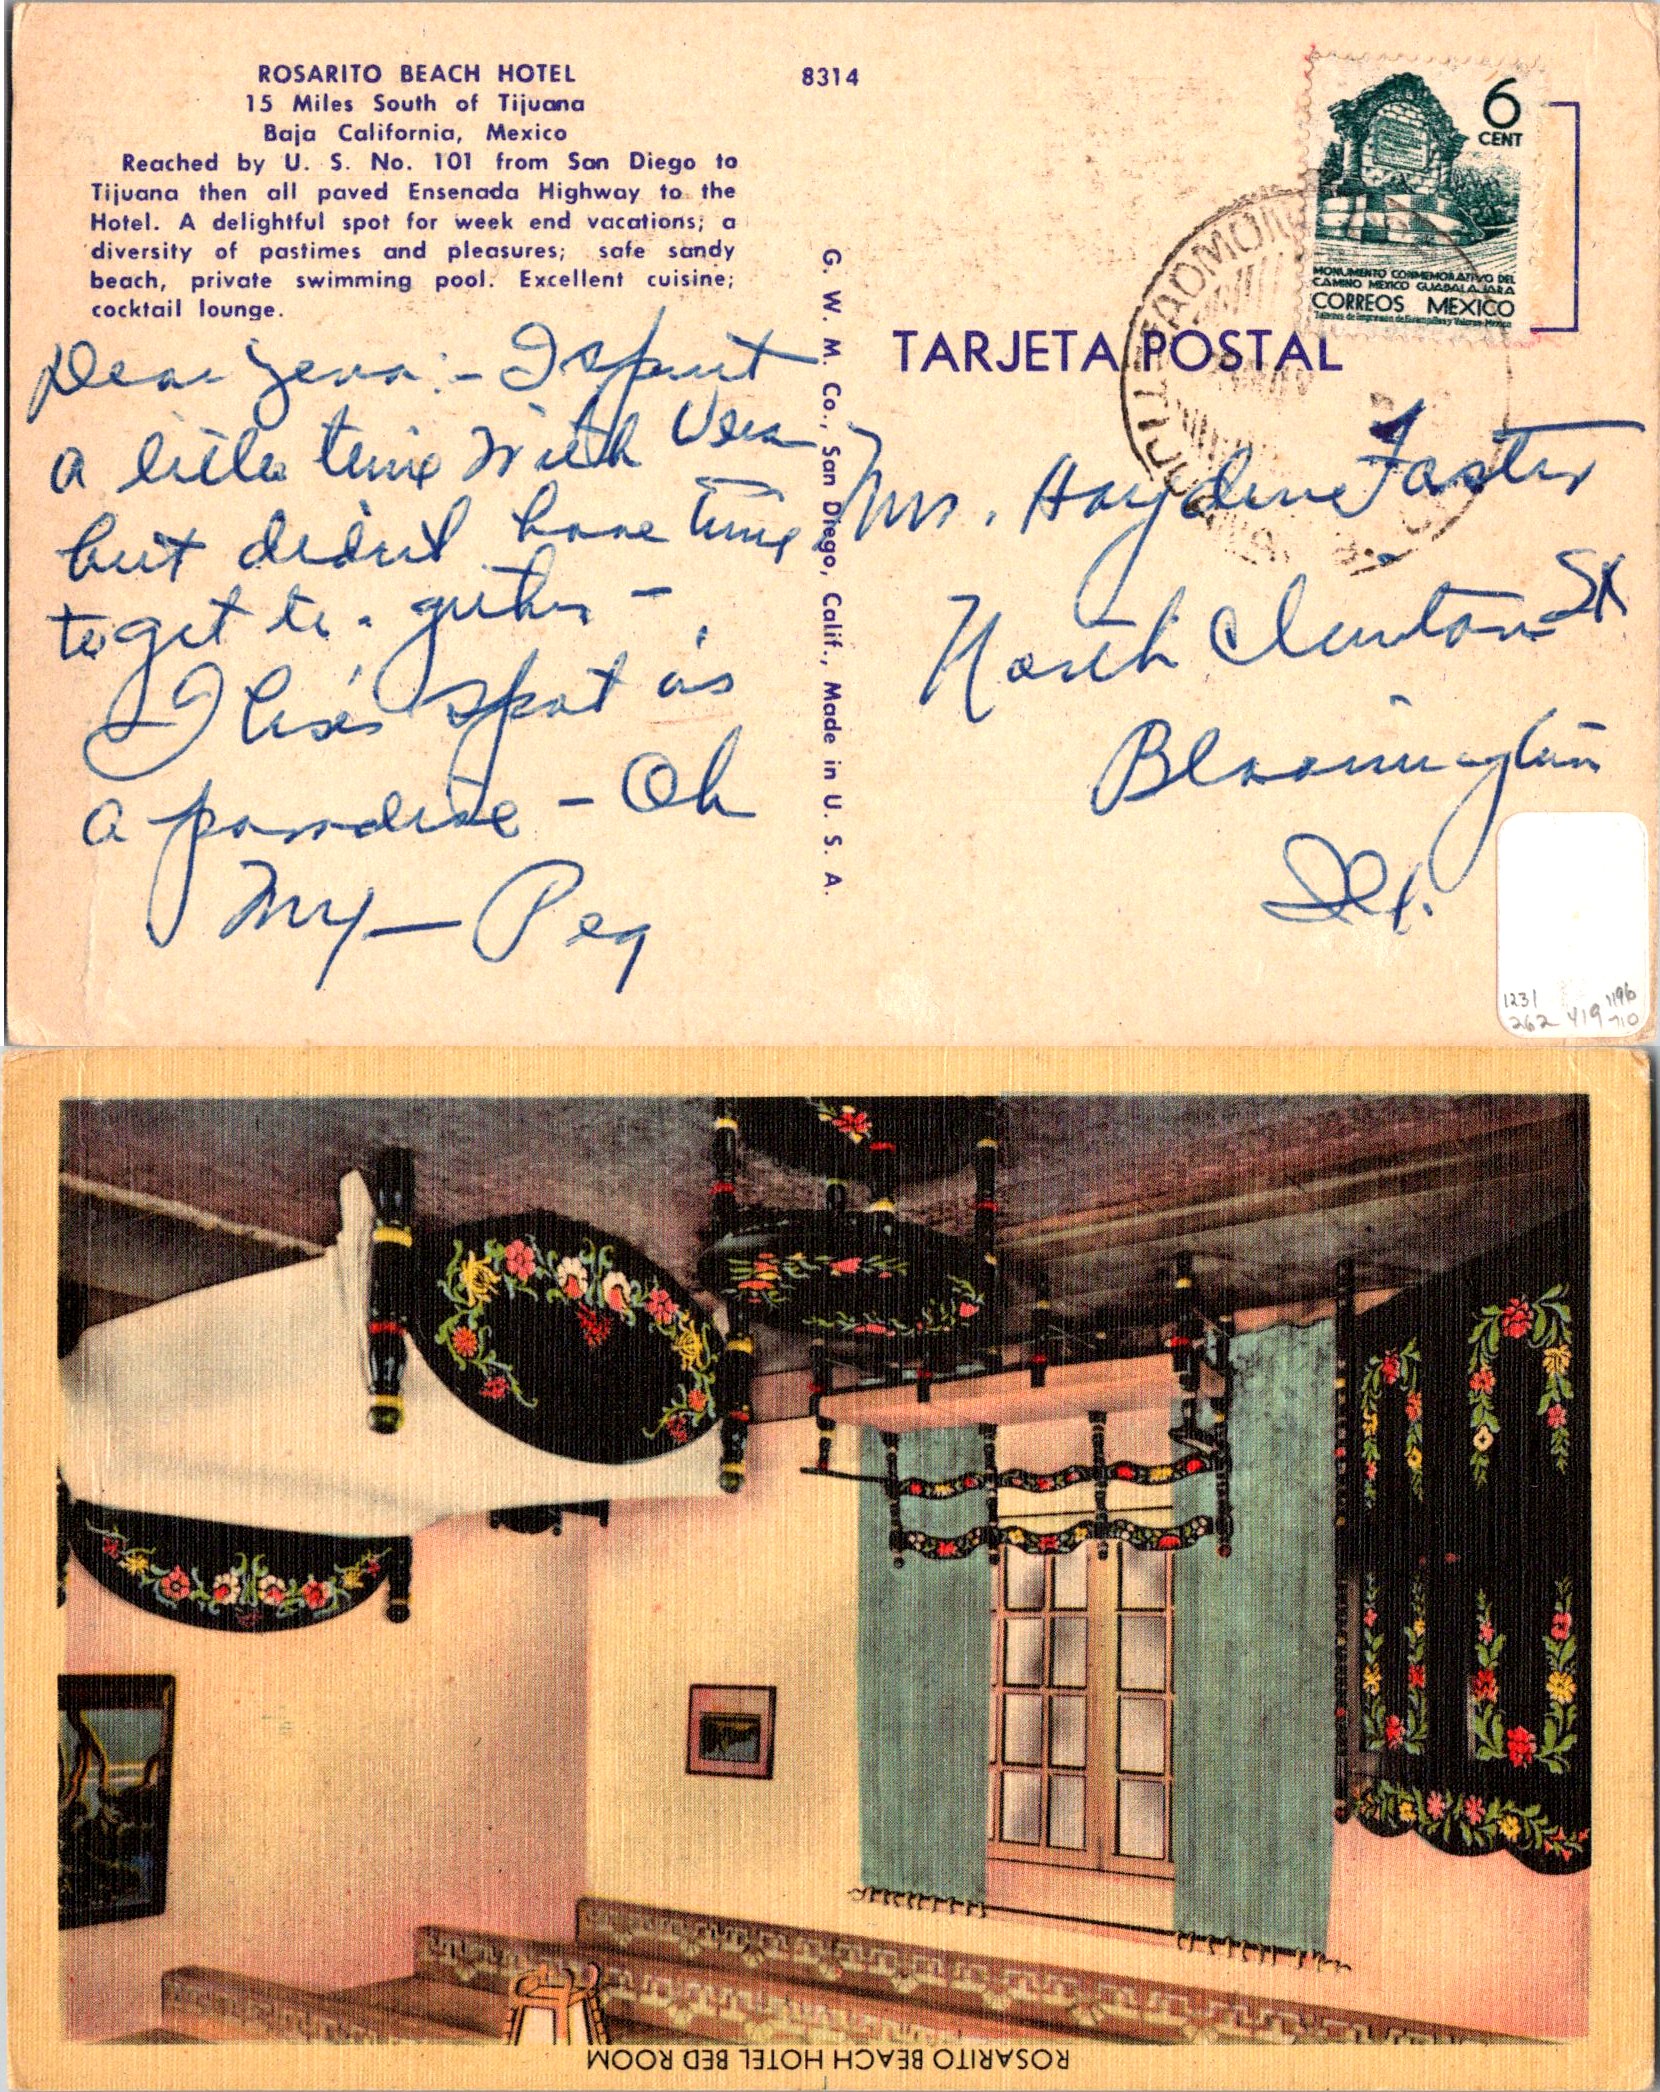 ROSARITO BEACH HOTEL
15 Miles South of Tijuana
Baja California, Mexico
Reached by U. S. No. 101 from San Diego to
Tijuana then all paved Ensenada Highway to the
Hotel. A delightful spot for week end vacations; a
diversity of pastimes and pleasures; safe sandy
beach, private swimming pool. Excellent cuisine;
cocktail lounge.
8314
6
CENT
MONUMENTO CONMEMORATIVO DEL
CAMINO MEXICO GUADALAJARA
CORREOS MEXICO
Talleres de Impresión de Estampillas y Valores-México
TARJETA POSTAL
G. W. M. Co., San Diego, Calif., Made in U. S. A.
Dear :- I spent
a little time with
but didn't have time
to get to-gether -
This spot is
a paradise - Oh
My - Peg
Mrs. Hayden Foster
North Clinton St
Bloomington
Ill.
1231 1196
262 419 710
ROSARITO BEACH HOTEL BED ROOM